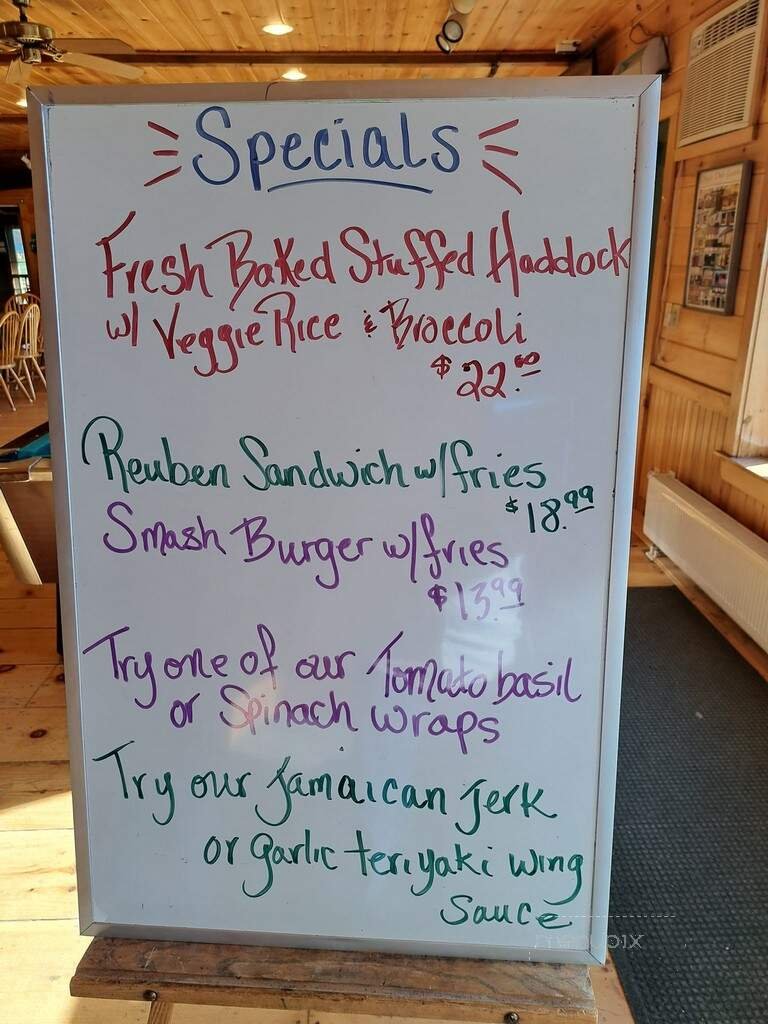 Specials
Fresh Baked Stuffed Haddock
w/ Veggie Rice & Broccoli
$22.00
Reuben Sandwich w/fries
$18.99
Smash Burger w/fries
$13.99
Try one of our Tomato basil
or Spinach wraps
Try our Jamaican Jerk
or garlic teriyaki wing
sauce